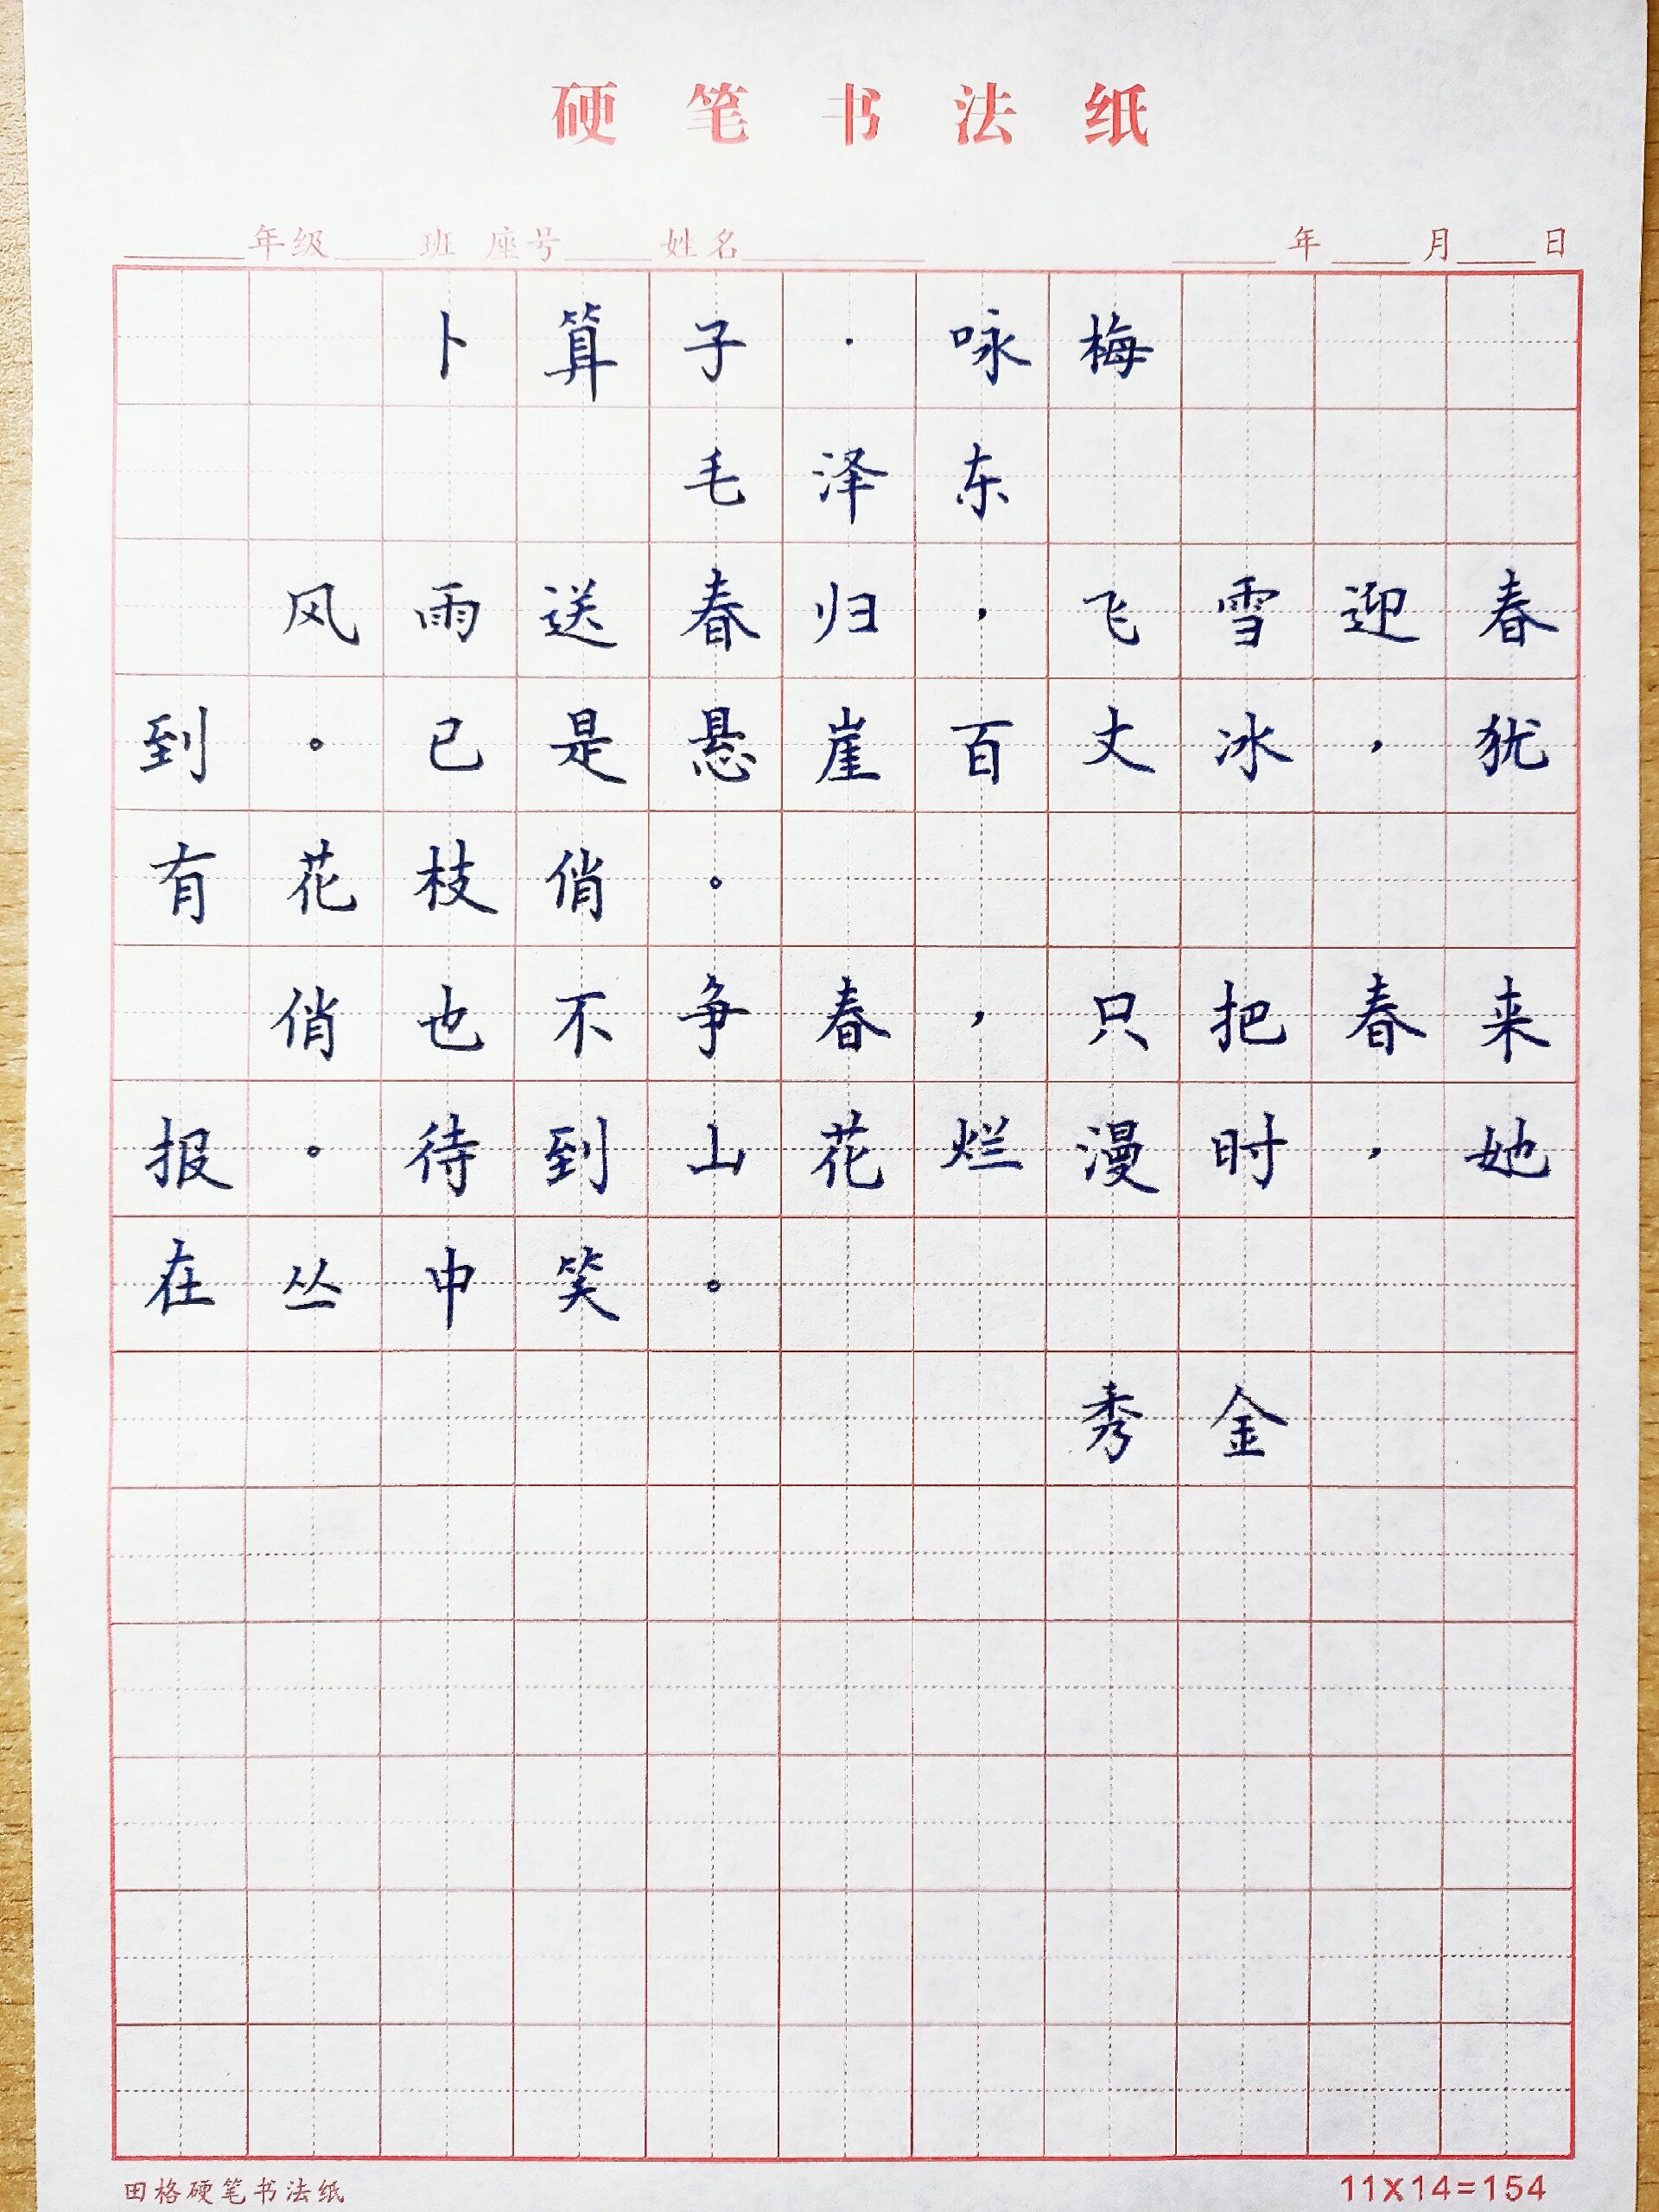 硬笔书法纸
______年级____班 座号____姓名_________ _____年____月____日
卜算子·咏梅
毛泽东
风雨送春归，飞雪迎春
到。已是悬崖百丈冰，犹
有花枝俏。
俏也不争春，只把春来
报。待到山花烂漫时，她
在丛中笑。
秀金
田格硬笔书法纸 11X14=154